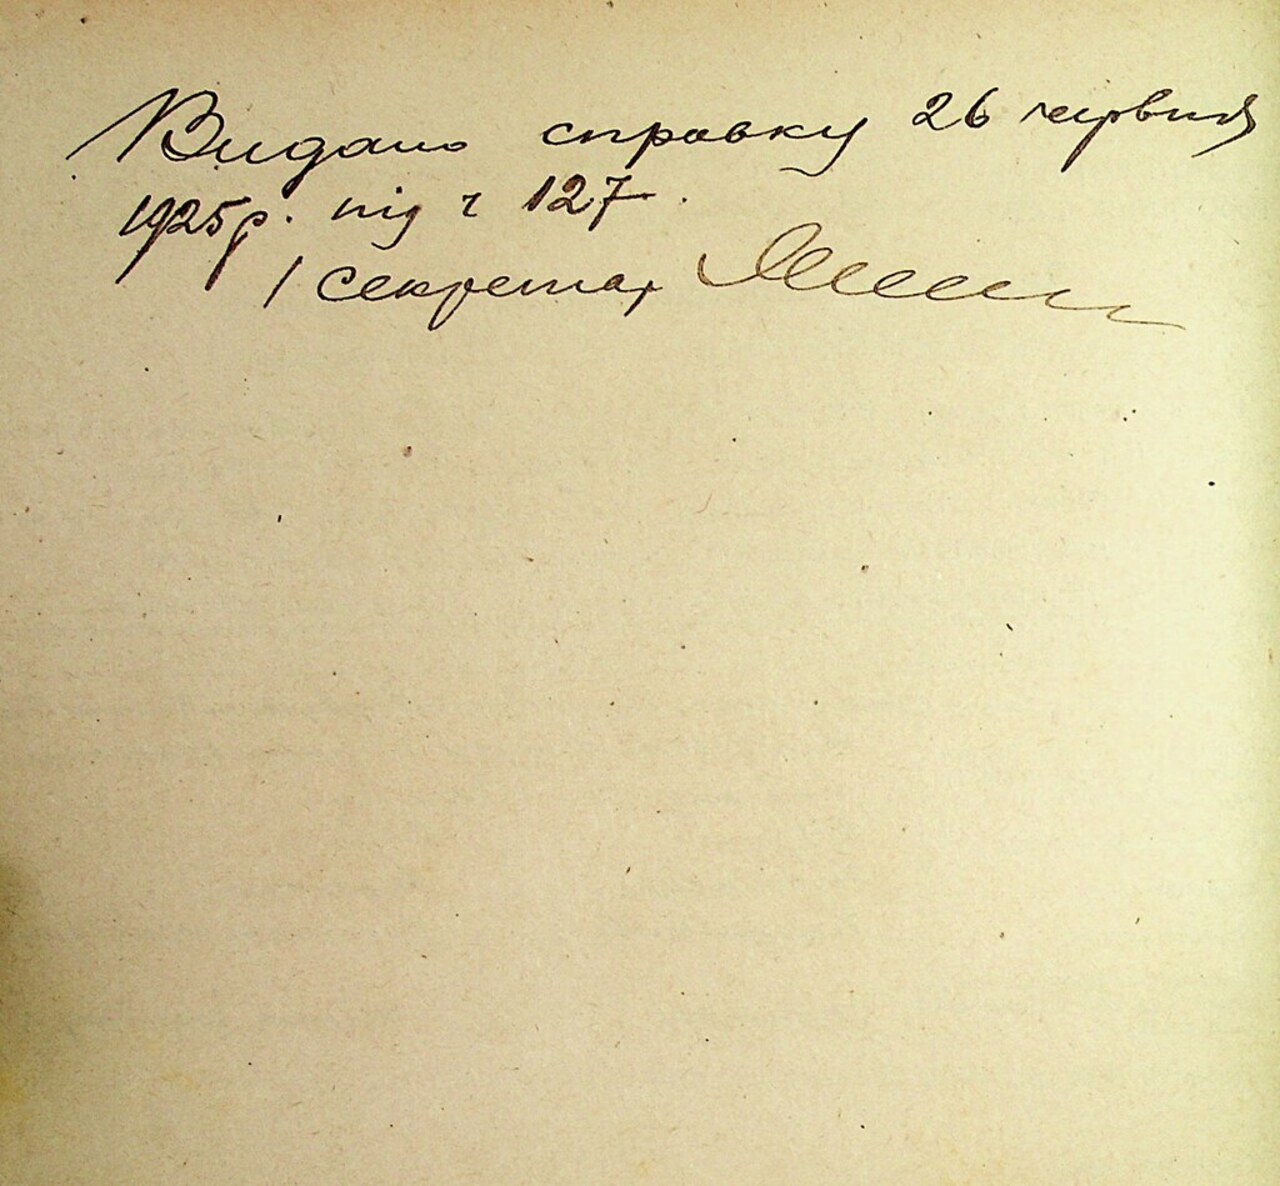 Видано справку 26 червня
1925р. під ч 127.
/ секретар